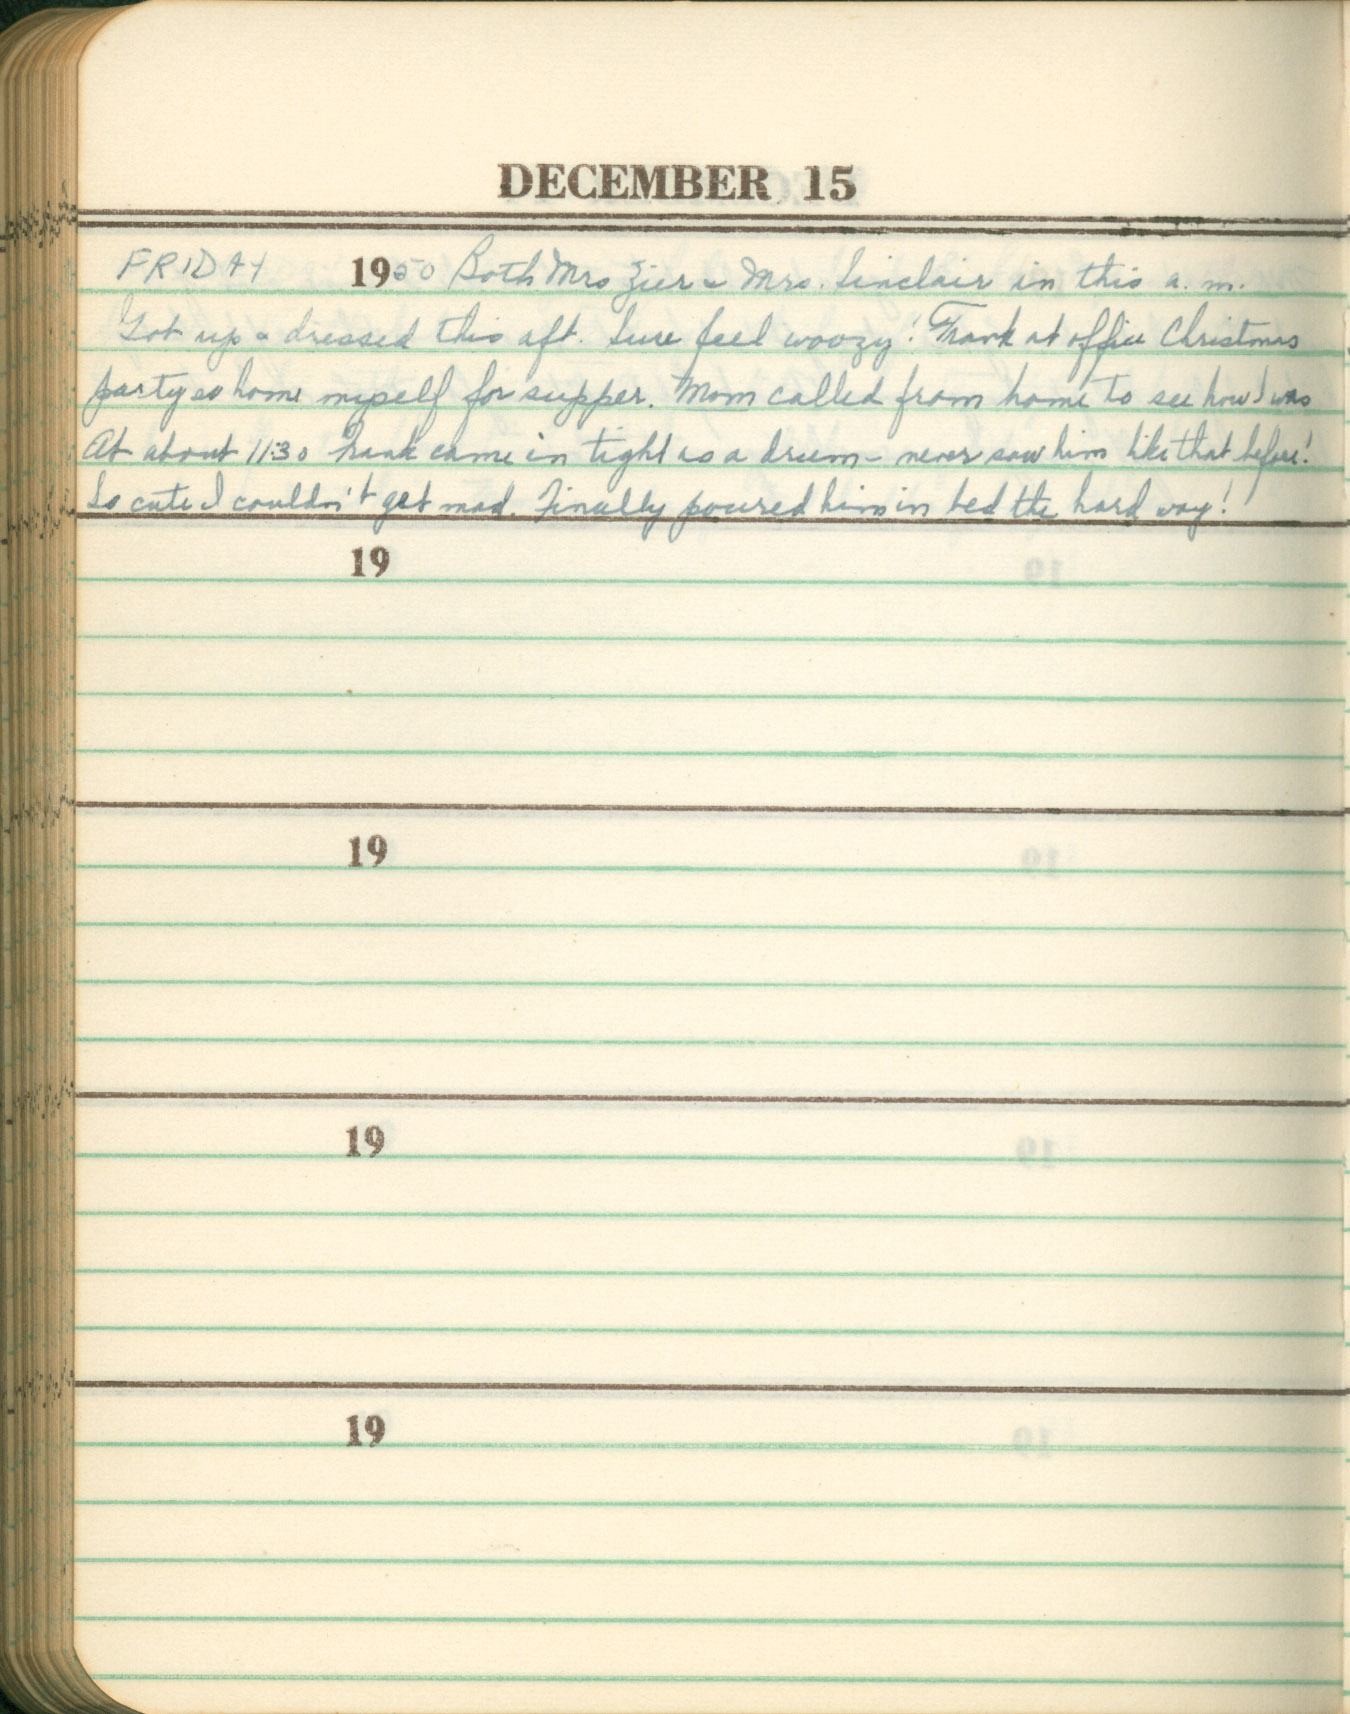 DECEMBER 15
FRIDAY 1950 Both Mrs Zier & Mrs. Sinclair in this a.m.
Got up & dressed this aft. Sure feel woozy! Frank at office Christmas
party so home myself for supper. Mom called from home to see how I was
At about 11:30 Frank came in tight as a drum - never saw him like that before!
So cute I couldn't get mad. Finally poured him in bed the hard way!
19
19
19
19